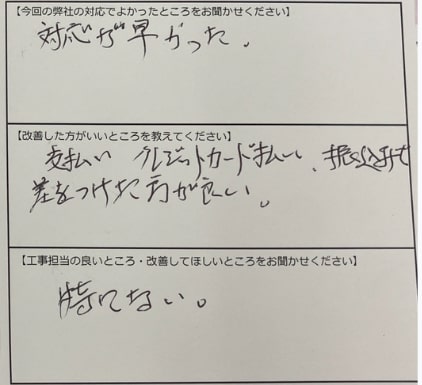 【今回の弊社の対応でよかったところをお聞かせください】
対応が早かった。
【改善した方がいいところを教えてください】
支払い クレジットカード払い、振り込みで
差をつけた方が良い。
【工事担当の良いところ・改善してほしいところをお聞かせください】
特にない。